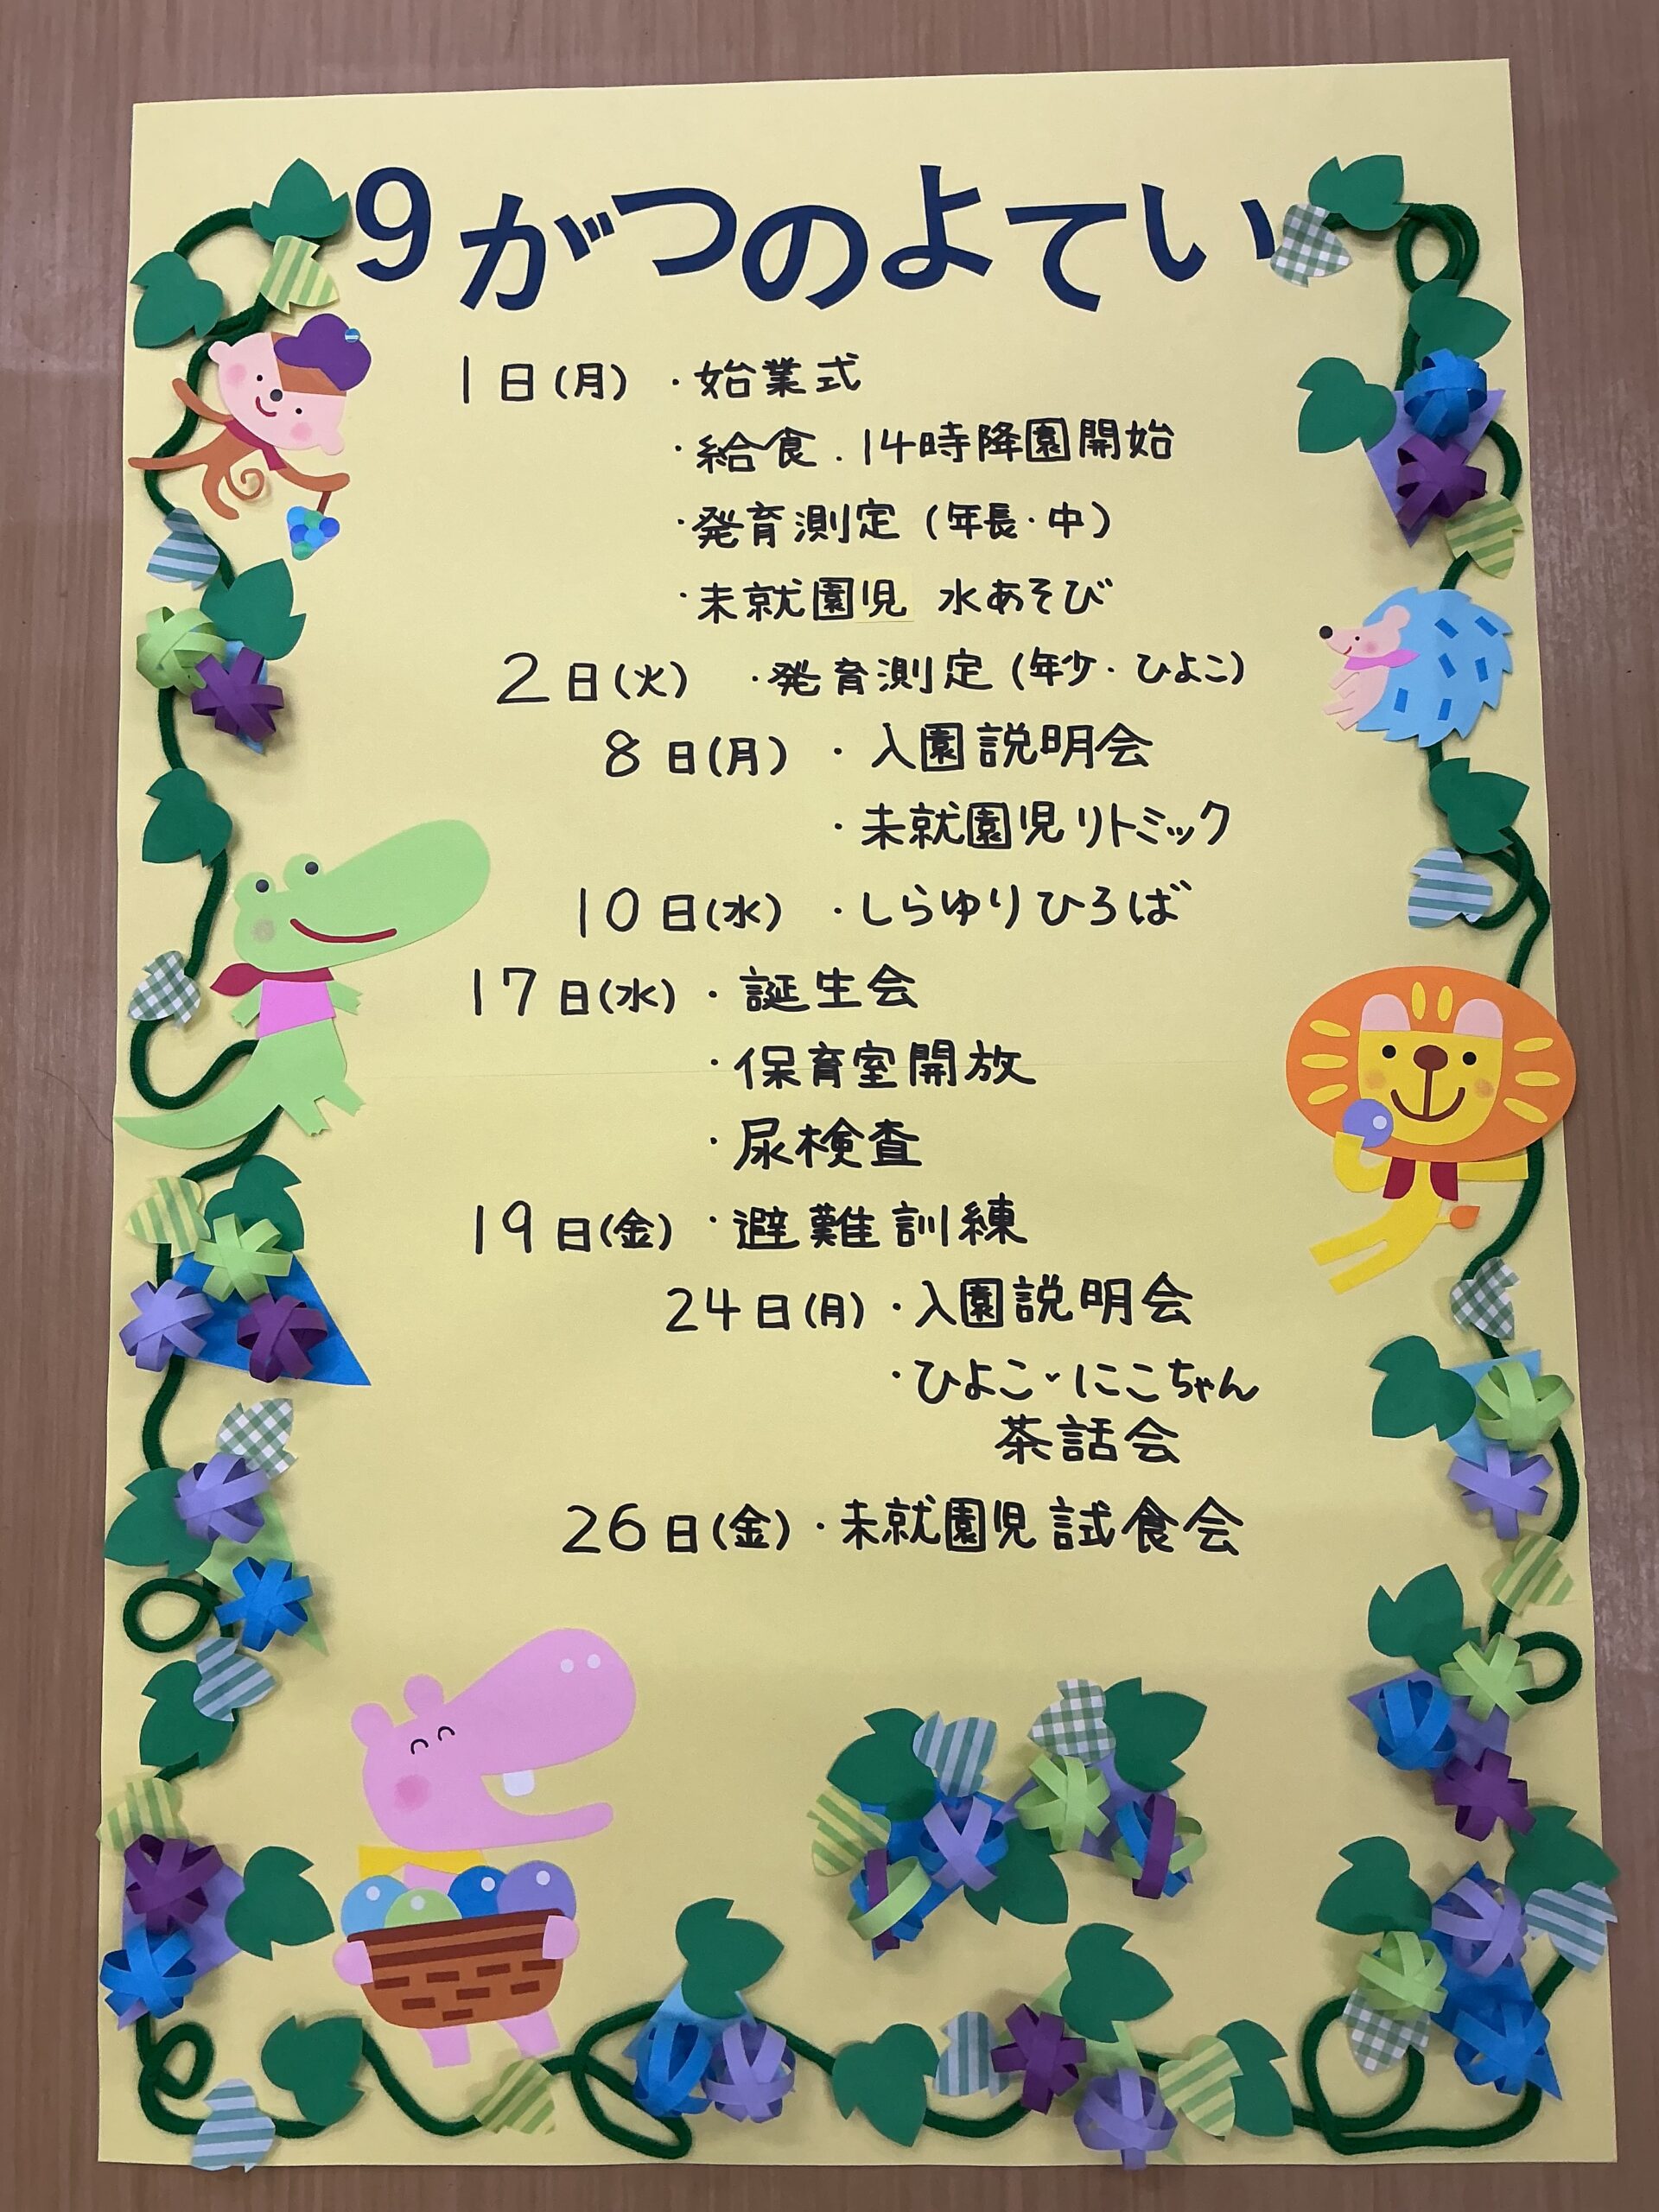 9がつのよてい
1日(月) ・始業式
・給食.14時降園開始
・発育測定(年長・中)
・未就園児 水あそび
2日(火) ・発育測定(年少・ひよこ)
8日(月) ・入園説明会
・未就園児リトミック
10日(水) ・しらゆりひろば
17日(水) ・誕生会
・保育室開放
・尿検査
19日(金) ・避難訓練
24日(月) ・入園説明会
・ひよこ・にこちゃん
茶話会
26日(金) ・未就園児試食会